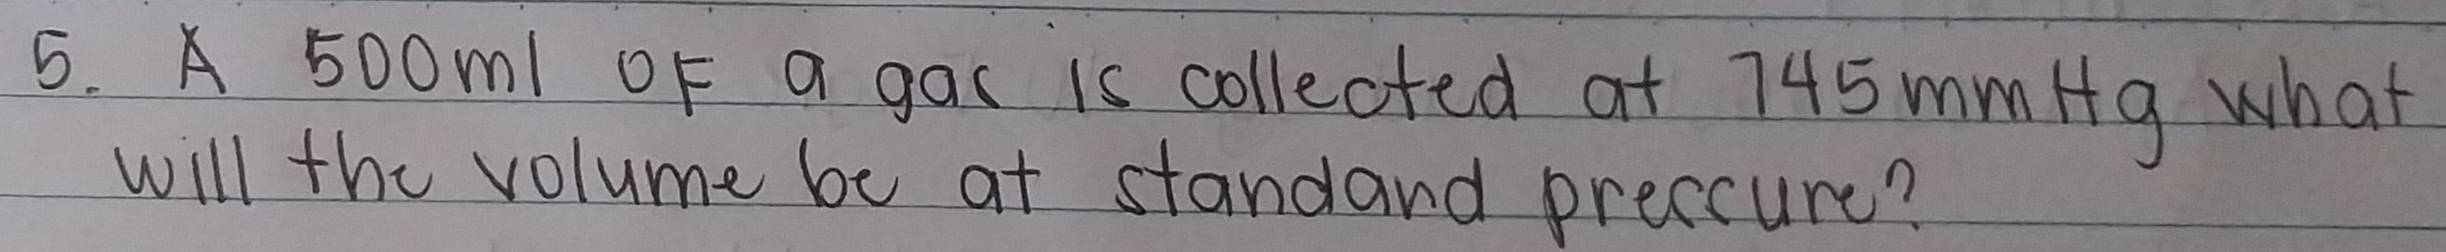 5. A 500ml of a gas is collected at 745mmHg what
will the volume be at standand preccure?